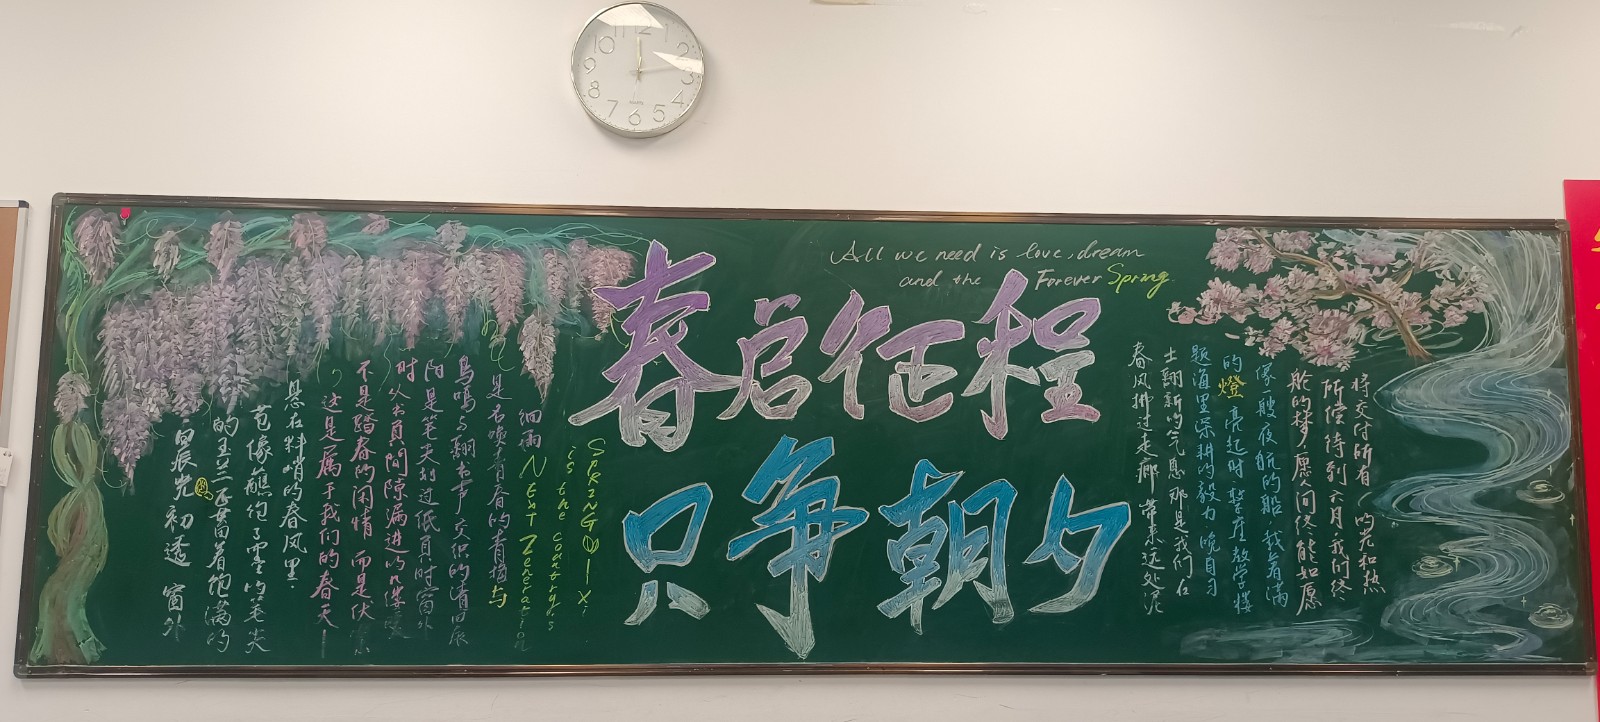 12
1
2
3
4
5
6
7
8
9
10
11
QUARTZ
All we need is love, dream
and the Forever Spring.
春启征程
只争朝夕
晨光初透 窗外
的玉兰正蓄着饱满的
苞像蘸饱了墨的毛尖
悬在料峭的春风里.
这是属于我们的春天—
不是踏春的闲情 而是伏
时 从书页间隙漏进的几缕暖
阳 是笔尖划过纸页时窗外
鸟鸣与翻书声交织的清晨
是名唤青春的青梅与
细雨
Next Zeneration
is the country's
SPRING
春风拂过走廊 带来远处泥
土翻新的气息 那是我们在
题海里深耕的毅力 晚自习
的燈亮起时 整座教学楼
像一艘夜航的船,载着满
舱的梦,愿人间终能如愿
所偿 待到六月,我们终
将交付所有的光和热